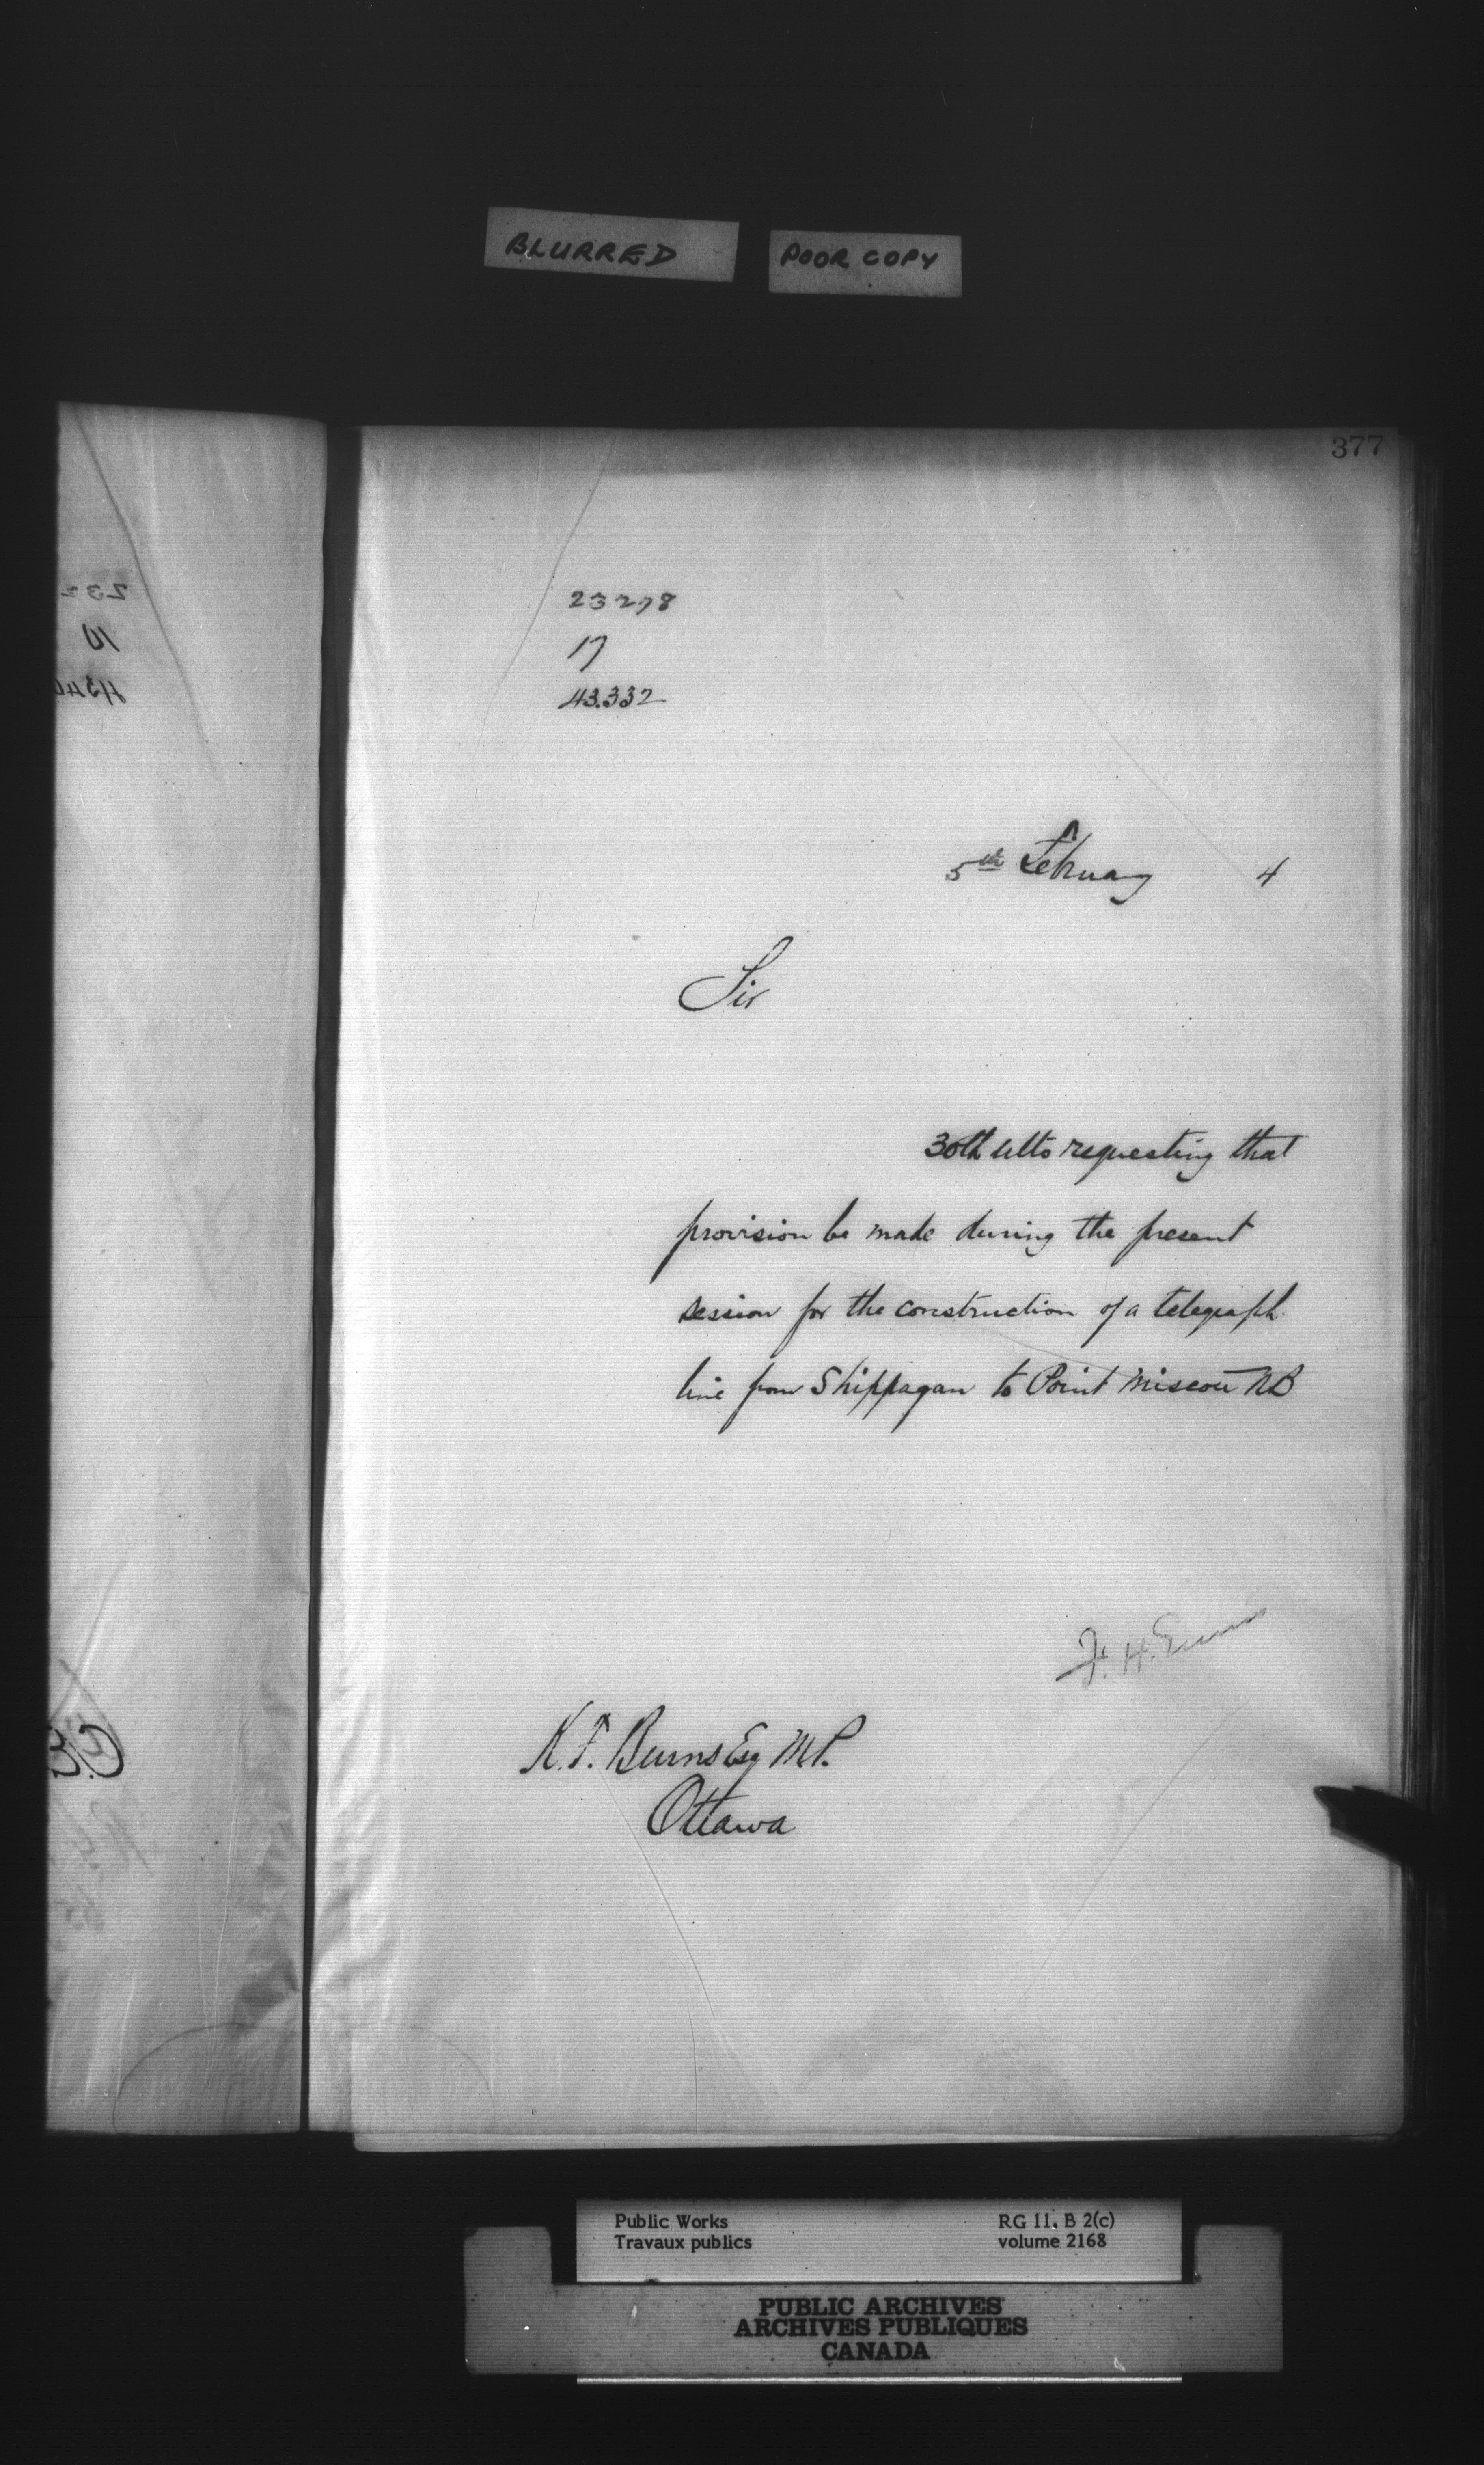 BLURRED
POOR COPY
377
23278
17
43.332
5th February 4
Sir
30th ulto requesting that
provision be made during the present
session for the construction of a telegraph
line from Shippagan to Point Miscou NB
F. H. Ennis
K. F. Burns Esq M.P.
Ottawa
Public Works
Travaux publics
RG 11, B 2(c)
volume 2168
PUBLIC ARCHIVES
ARCHIVES PUBLIQUES
CANADA